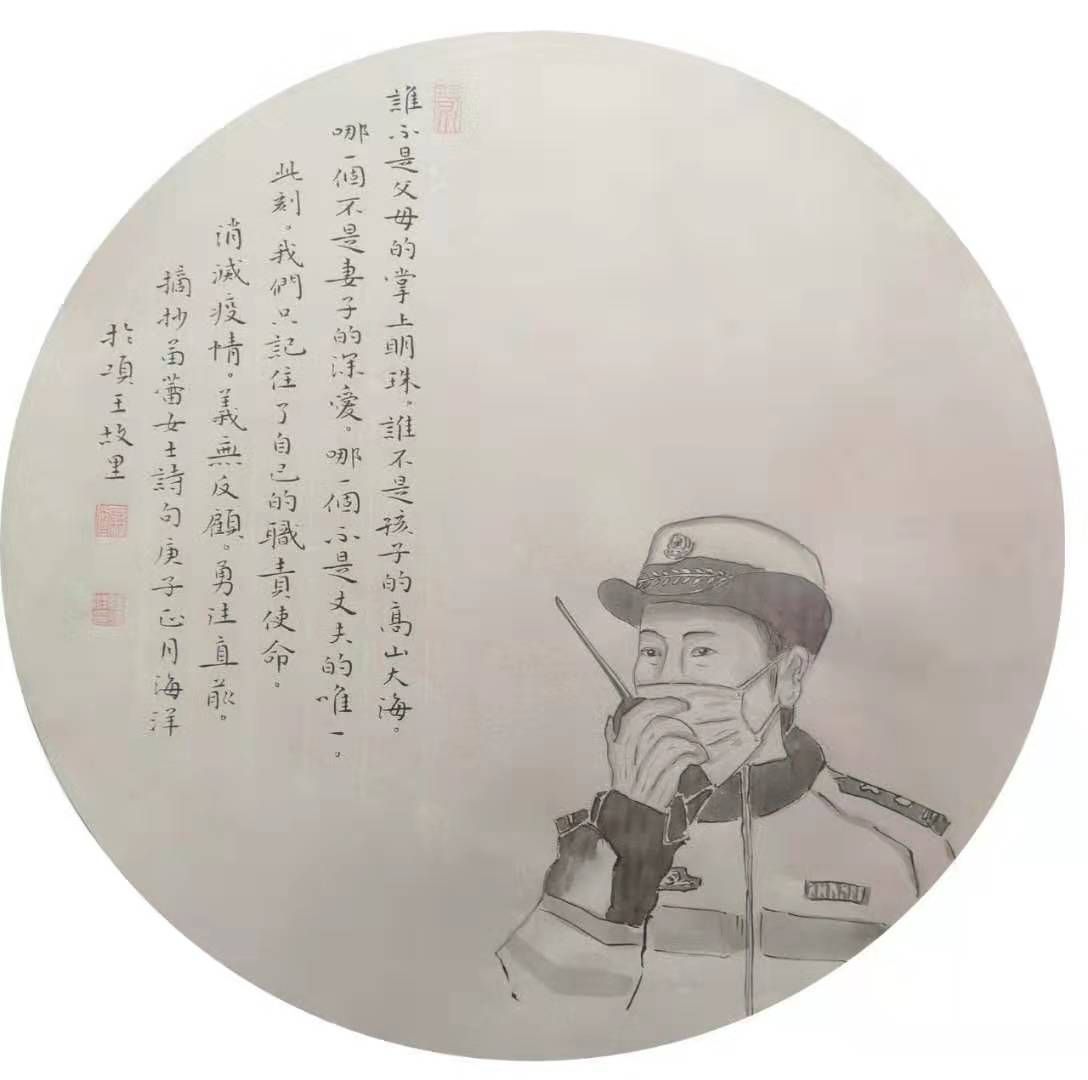 誰不是父母的掌上明珠。誰不是孩子的高山大海。
哪一個不是妻子的深愛。哪一個不是丈夫的唯一。
此刻。我們只記住了自己的職責使命。
消滅疫情。義無反顧。勇往直前。
摘抄苗蕾女士詩句庚子正月海洋
於項王故里